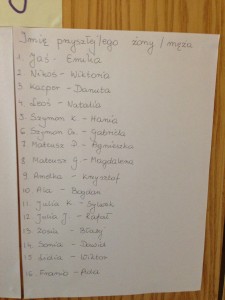 Imię przyszłej/ego żony/męża
1. Jaś - Emilia
2. Nikoś - Wiktoria
3. Kacper - Danuta
4. Leoś - Natalia
5. Szymon K. - Hania
6. Szymon Ch. - Gabrysia
7. Mateusz D. - Agnieszka
8. Mateusz G - Magdalena
9. Amelka - Krzysztof
10. Ala - Bogdan
11. Julia K - Sylwek
12. Julia J - Rafał
13. Zosia - Błażej
14. Sonia - Dawid
15. Lidia - Wiktor
16. Franio - Ada